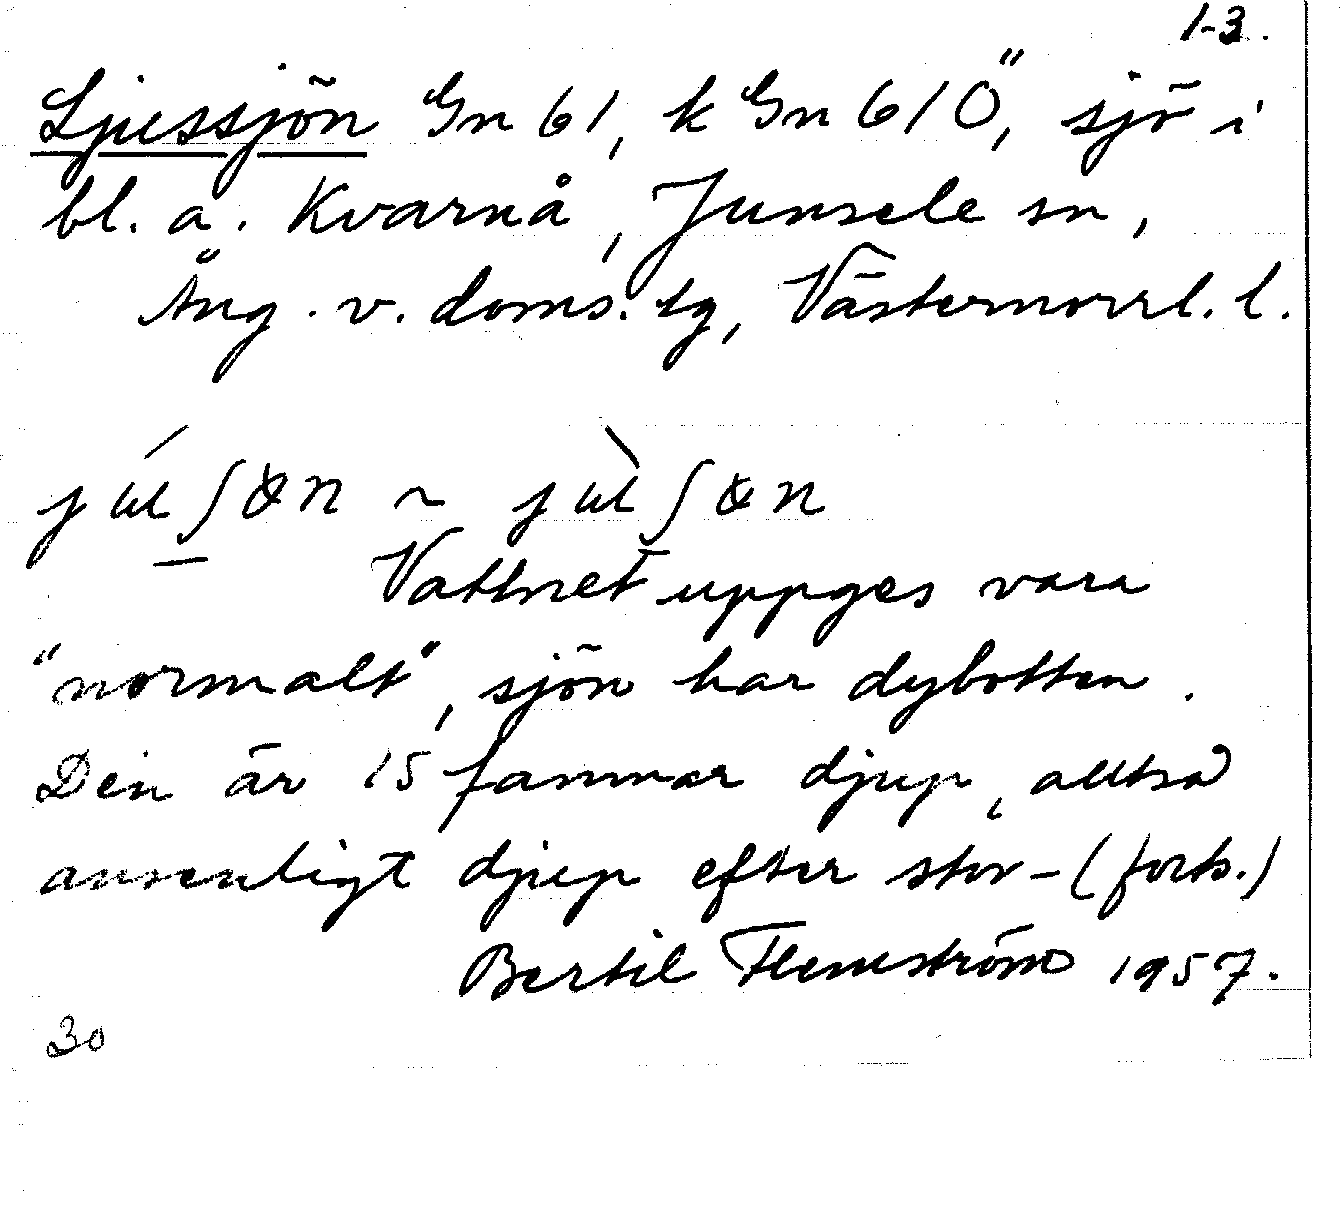 1-3.
Ljussjön Gn 61, k Gn 61 Ö, sjö i
bl. a. Kvarnå, Junsele sn,
Ång. v. doms. tg, Västernorrl. l.
Vattnet uppges vara
"normalt", sjön har dybotten.
Den är 15 famnar djup, alltså
ansenligt djup efter stor- (forts.)
Bertil Flemström 1957.
30